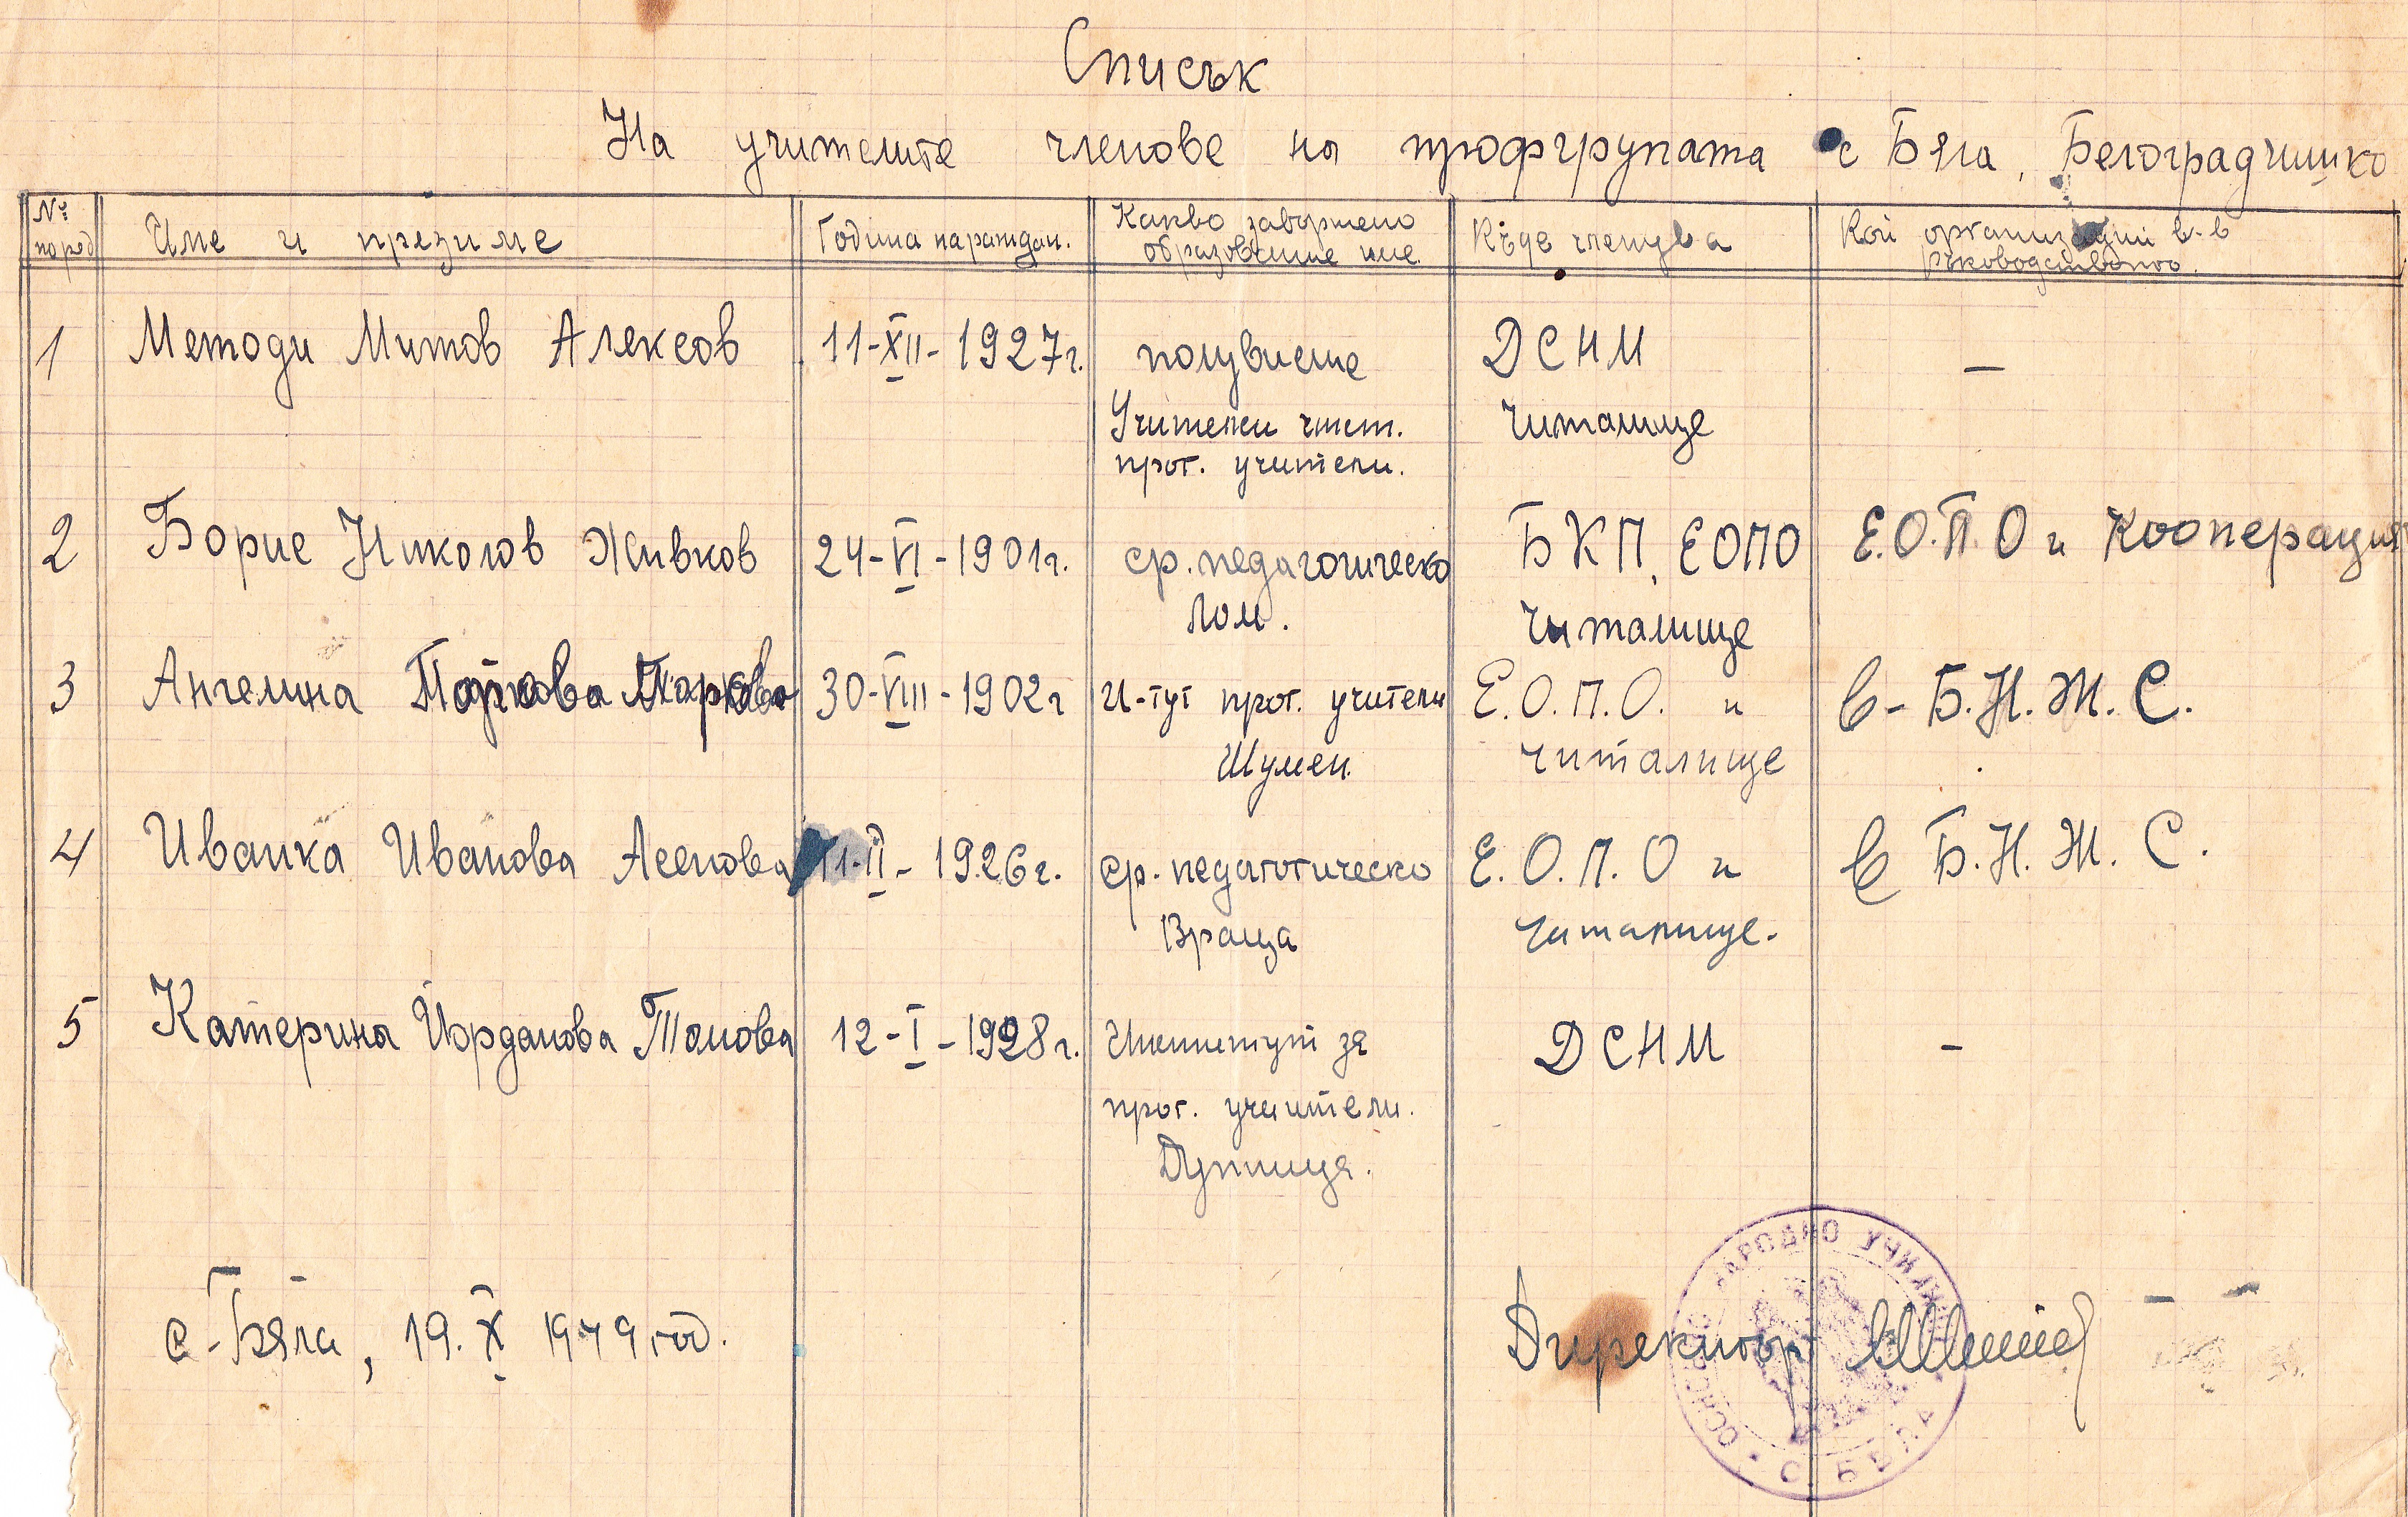 Списък
На учителите членове на профгрупата с Бяла, Белоградчишко
№ поред
Име и презиме
Година на раждан.
Какво завършено образование име.
Къде членува
Кои организации в-в ръководството.
1 Методи Митов Алексов 11-XII-1927г. полувисше ДСНМ –
Учителски инст. читалище
прог. учители.
2 Борис Николов Живков 24-VI-1901г. ср. педагогическо БКП, ЕОПО Е.О.П.О и Кооперация
Лом. Читалище
3 Ангелина Маркова 30-VIII-1902г И-тут прог. учители Е.О.П.О. и в- Б.Н.Ж.С.
Шумен. читалище
4 Иванка Иванова Асенова 11-II-1926г. ср. педагогическо Е.О.П.О и в Б.Н.Ж.С.
Враца читалище.
5 Катерина Йорданова Танова 12-I-1928г. Институт за ДСНМ –
прог. учители.
Дупница.
с-Бяла, 19.X 1949 год.
Директор
НАРОДНО УЧИЛИЩЕ
С. БЕЛА